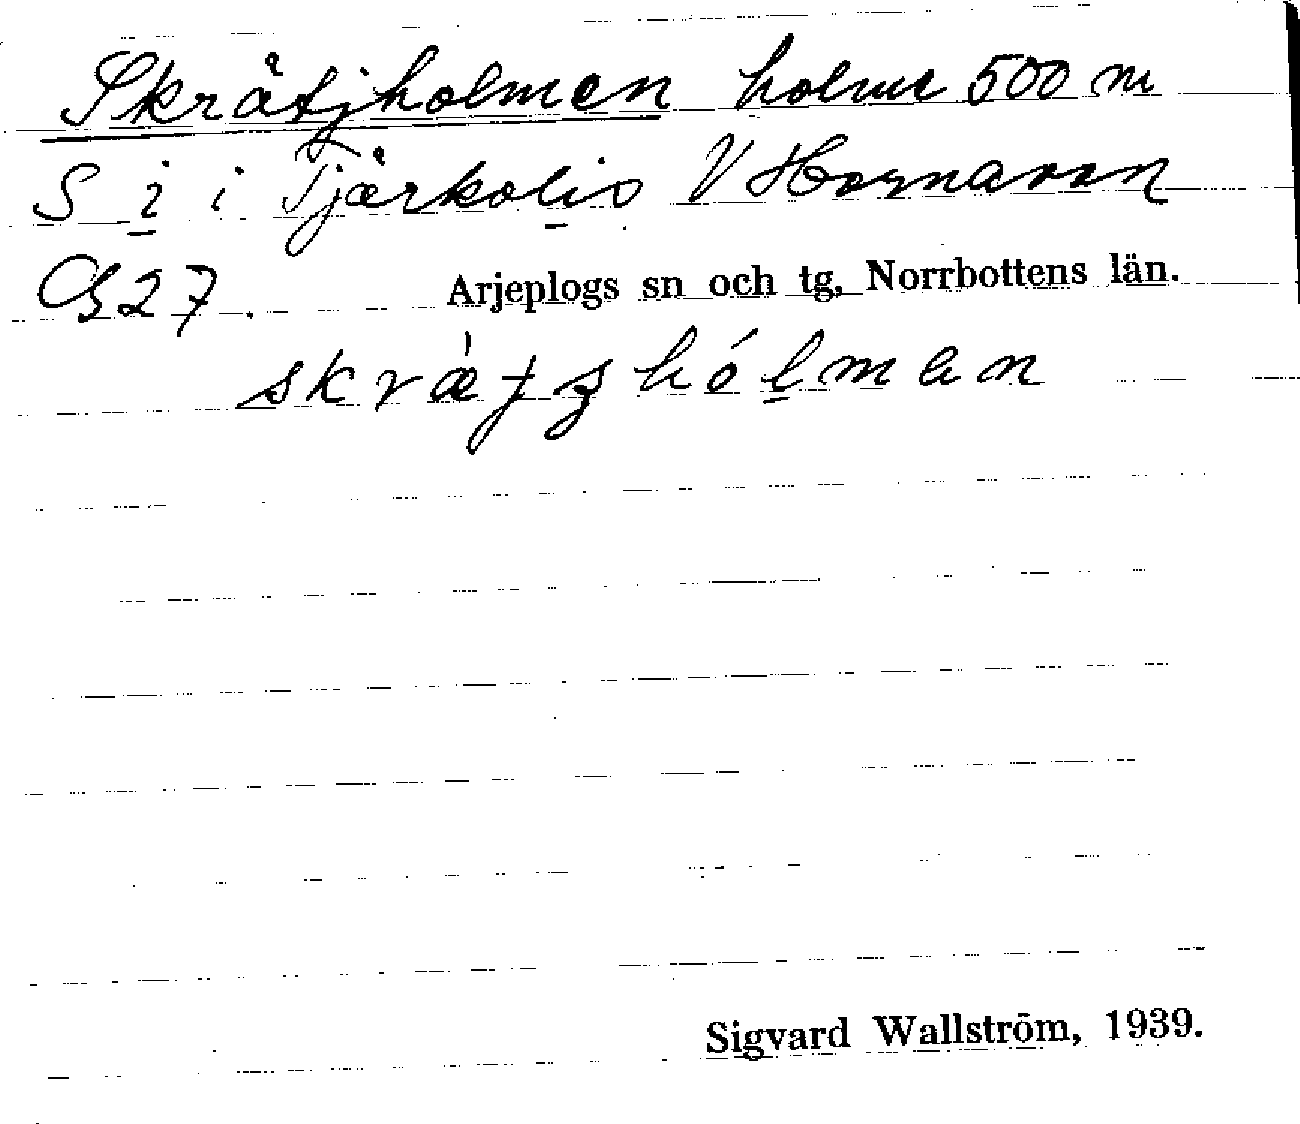 Skråtjholmen holme 500 m
S i i Tjårkolis V Hornavan
G27. Arjeplogs sn och tg, Norrbottens län.
Sigvard Wallström, 1939.